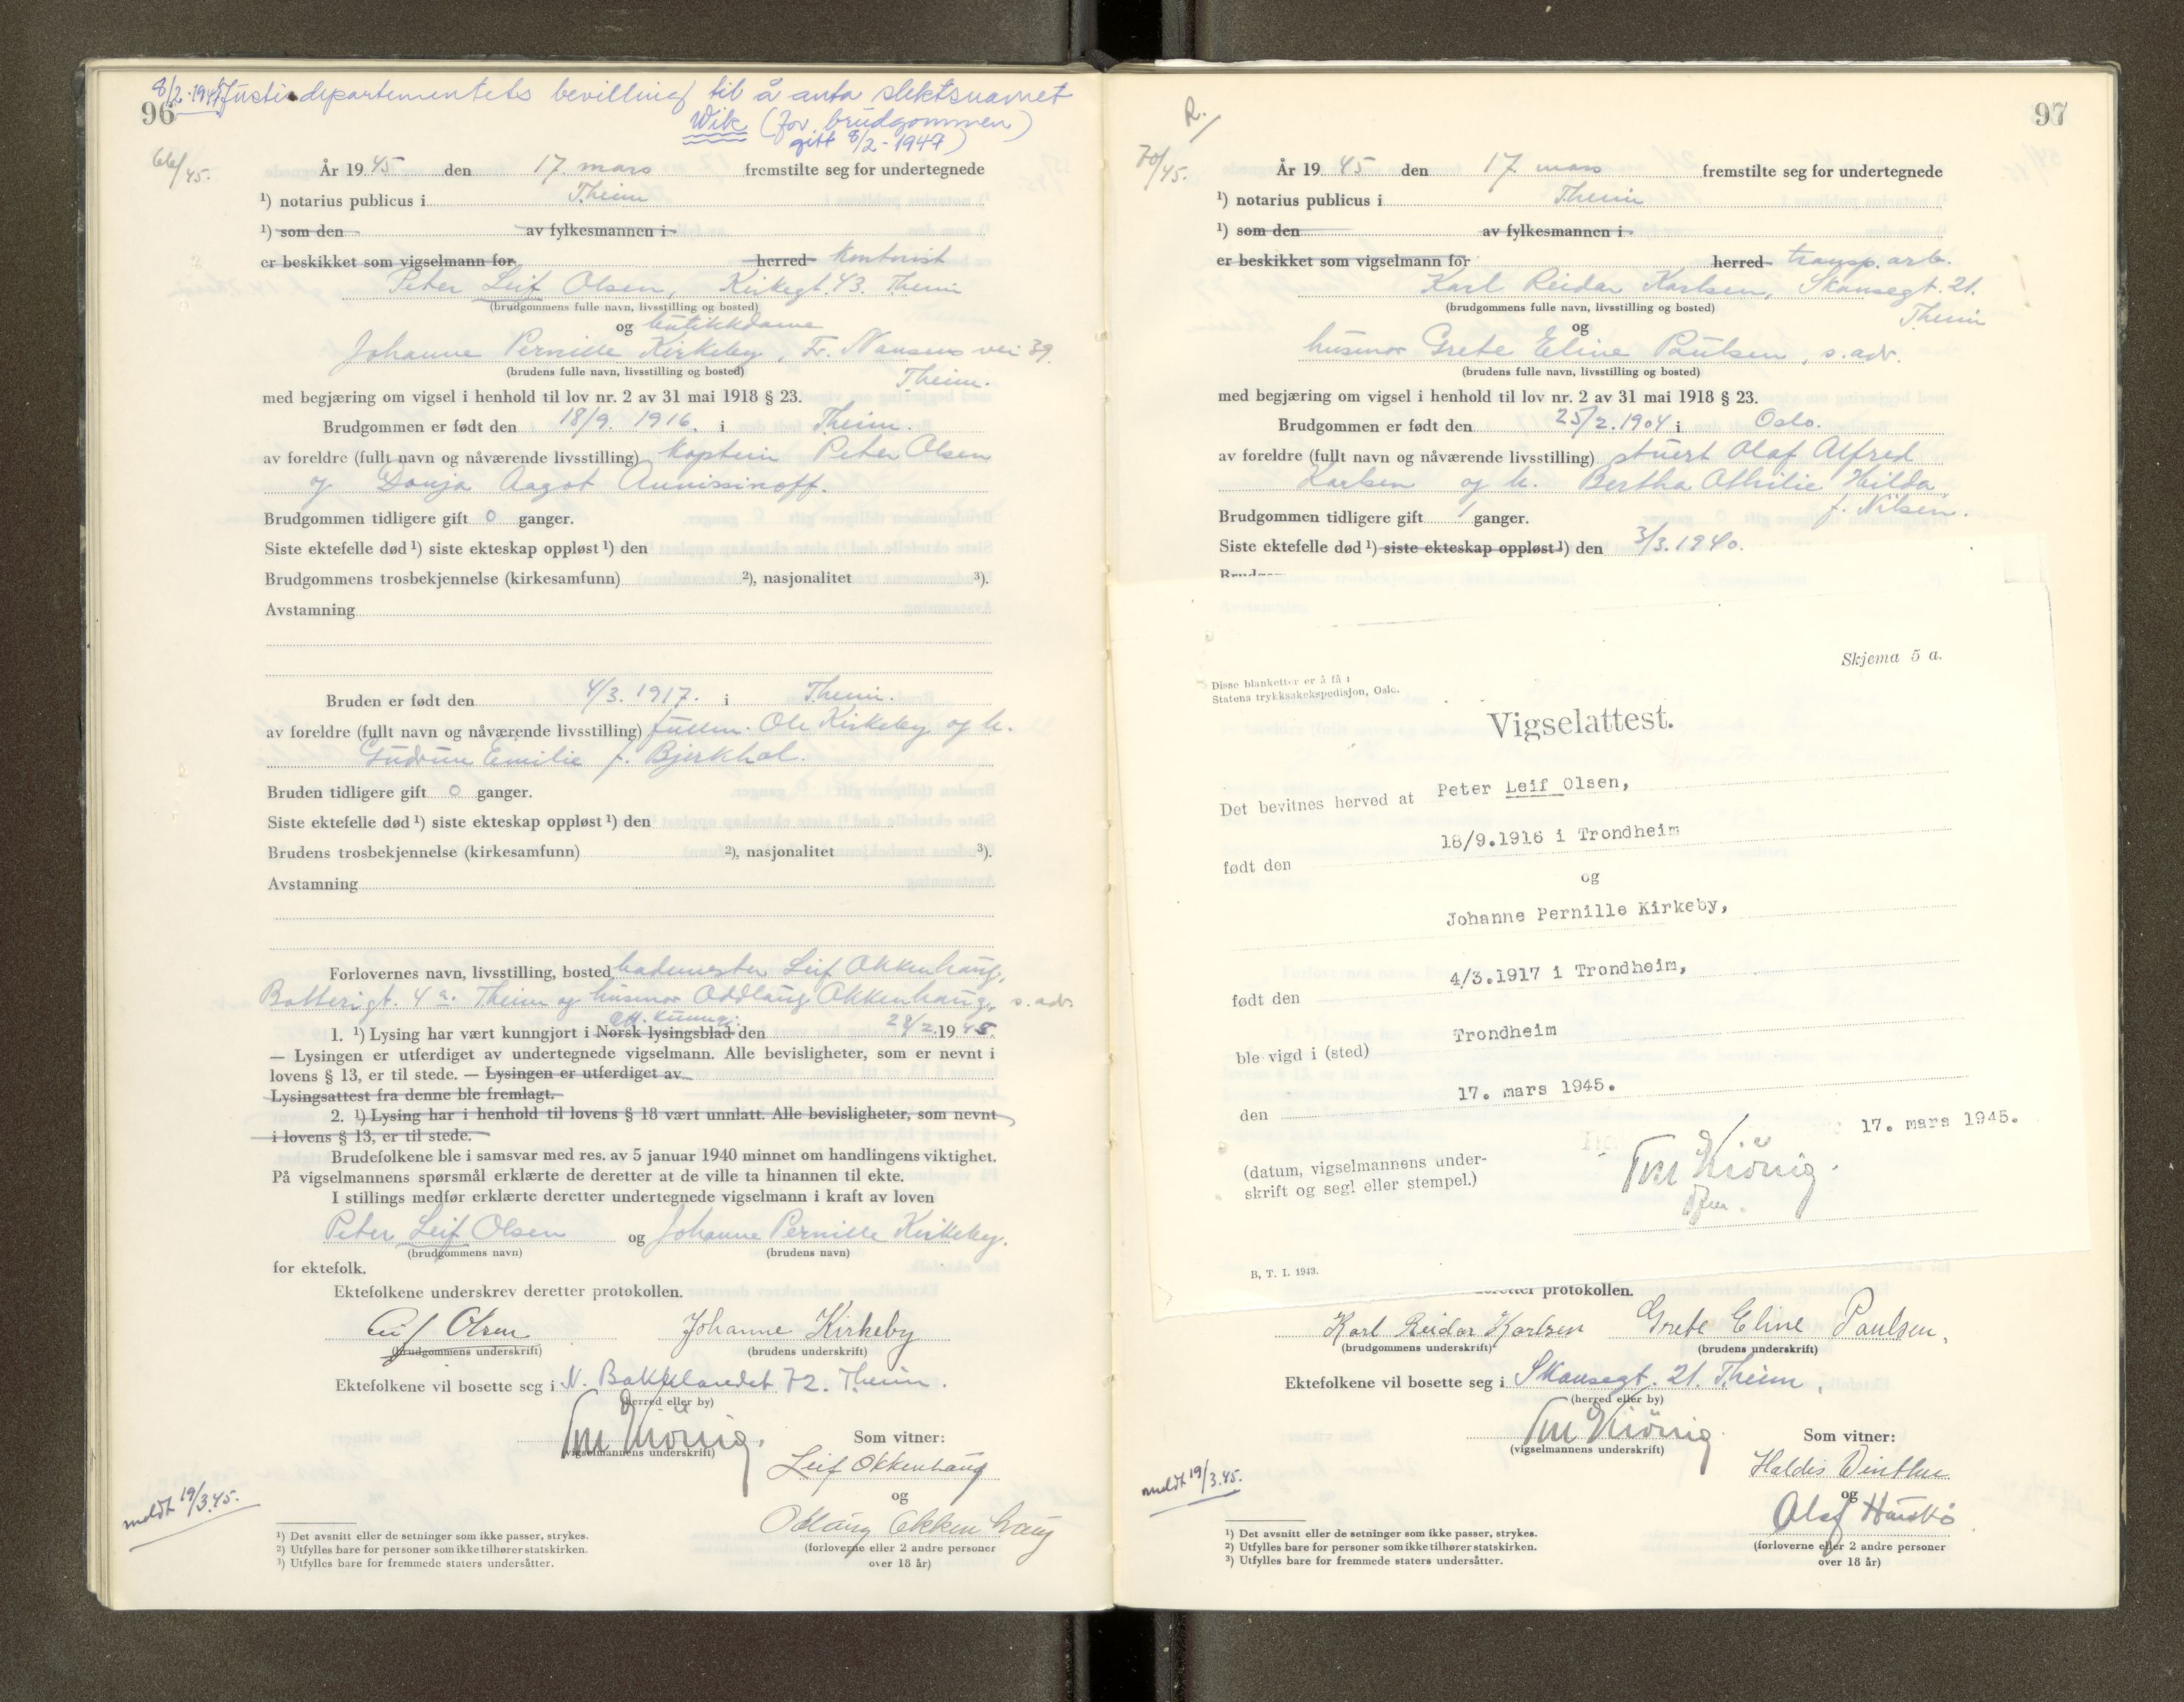 8/2-1947 Justisdepartementets bevilling til å anta slektsnavnet
Wik (for brudgommen)
gitt 8/2-1947)
96
66/45.
År 1945 den 17. mars fremstilte seg for undertegnede
¹) notarius publicus i Theim
¹) som den av fylkesmannen i
er beskikket som vigselmann for herred kontorist
Peter Leif Olsen, Kirkegt. 43. Theim
(brudgommens fulle navn, livsstilling og bosted)
og butikkdame
Johanne Pernille Kirkeby, Fr. Nansens vei 39.
(brudens fulle navn, livsstilling og bosted)
Theim.
med begjæring om vigsel i henhold til lov nr. 2 av 31 mai 1918 § 23.
Brudgommen er født den 18/9. 1916. i Theim.
av foreldre (fullt navn og nåværende livsstilling) kaptein Peter Olsen
og Donja Aagot Annissinoff.
Brudgommen tidligere gift 0 ganger.
Siste ektefelle død ¹) siste ekteskap oppløst ¹) den
Brudgommens trosbekjennelse (kirkesamfunn) ²), nasjonalitet ³).
Avstamning
Bruden er født den 4/3. 1917. i Theim.
av foreldre (fullt navn og nåværende livsstilling) fullm. Ole Kirkeby og h.
Gudrun Emilie f. Bjerkhol.
Bruden tidligere gift 0 ganger.
Siste ektefelle død ¹) siste ekteskap oppløst ¹) den
Brudens trosbekjennelse (kirkesamfunn) ²), nasjonalitet ³).
Avstamning
Forlovernes navn, livsstilling, bosted bademester Leif Okkenhaug,
Batterigt. 4 a. Theim og husmor Oddlaug Okkenhaug, s. adr.
1. ¹) Lysing har vært kunngjort i Norsk lysingsblad den 28/2. 1945.
— Lysingen er utferdiget av undertegnede vigselmann. Alle bevisligheter, som er nevnt i
lovens § 13, er til stede. — Lysingen er utferdiget av
Lysingsattest fra denne ble fremlagt.
2. ¹) Lysing har i henhold til lovens § 18 vært unnlatt. Alle bevisligheter, som nevnt
i lovens § 13, er til stede.
Brudefolkene ble i samsvar med res. av 5 januar 1940 minnet om handlingens viktighet.
På vigselmannens spørsmål erklærte de deretter at de ville ta hinannen til ekte.
I stillings medfør erklærte deretter undertegnede vigselmann i kraft av loven
Peter Leif Olsen og Johanne Pernille Kirkeby.
(brudgommens navn) (brudens navn)
for ektefolk.
Ektefolkene underskrev deretter protokollen.
Leif Olsen Johanne Kirkeby
(brudgommens underskrift) (brudens underskrift)
Ektefolkene vil bosette seg i N. Bakklandet 72. Theim.
(herred eller by)
(vigselmannens underskrift)
Som vitner:
Leif Okkenhaug
og
Odlaug Okkenhaug
(forloverne eller 2 andre personer
over 18 år)
meldt 19/3.45.
¹) Det avsnitt eller de setninger som ikke passer, strykes.
²) Utfylles bare for personer som ikke tilhører statskirken.
³) Utfylles bare for fremmede staters undersåtter.
R./
97
70/45.
År 1945 den 17. mars fremstilte seg for undertegnede
¹) notarius publicus i Theim
¹) som den av fylkesmannen i
er beskikket som vigselmann for herred transp. arb.
Karl Reidar Karlsen, Skansegt. 21.
(brudgommens fulle navn, livsstilling og bosted)
Theim
og
husmor Grete Eline Paulsen, s. adr.
(brudens fulle navn, livsstilling og bosted)
med begjæring om vigsel i henhold til lov nr. 2 av 31 mai 1918 § 23.
Brudgommen er født den 25/2. 1904 i Oslo.
av foreldre (fullt navn og nåværende livsstilling) stuert Olaf Alfred
Karlsen og h. Bertha Athilie Hilda
f. Nilsen.
Brudgommen tidligere gift 1 ganger.
Siste ektefelle død ¹) siste ekteskap oppløst ¹) den 3/3. 1940.
Skjema 5 a.
Disse blanketter er å få i
Statens trykksakekspedisjon, Oslo.
Vigselattest.
Det bevitnes herved at Peter Leif Olsen,
født den 18/9.1916 i Trondheim
og
Johanne Pernille Kirkeby,
født den 4/3.1917 i Trondheim,
ble vigd i (sted) Trondheim
den 17. mars 1945.
17. mars 1945.
(datum, vigselmannens under-
skrift og segl eller stempel.)
B. T. I. 1943.
deretter protokollen.
Karl Reidar Karlsen Grete Eline Paulsen,
(brudgommens underskrift) (brudens underskrift)
Ektefolkene vil bosette seg i Skansegt. 21. Theim,
(herred eller by)
(vigselmannens underskrift)
Som vitner:
Haldis Winther
og
Olaf
(forloverne eller 2 andre personer
over 18 år)
meldt 19/3.45.
¹) Det avsnitt eller de setninger som ikke passer, strykes.
²) Utfylles bare for personer som ikke tilhører statskirken.
³) Utfylles bare for fremmede staters undersåtter.